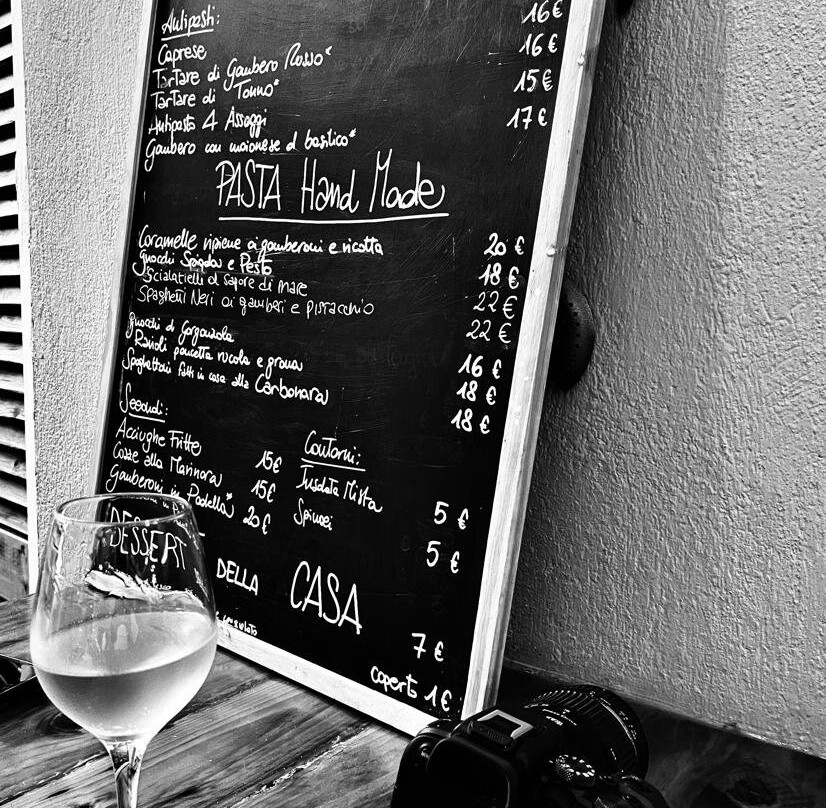 Antipasti:
Caprese 16€
Tartare di Gambero Rosso* 16€
Tartare di Tonno* 15€
Antipasto 4 Assaggi 17€
Gambero con maionese al basilico*
PASTA Hand Made
Caramelle ripiene ai gamberoni e ricotta 20 €
gnocchi Spada e Pesto 18 €
Scialatielli al sapore di mare 22 €
Spaghetti Neri ai gamberi e pistacchio 22 €
gnocchi al gorgonzola 16 €
Ravioli pancetta rucola e grana 18 €
Spaghettoni fatti in casa alla Carbonara 18 €
Secondi:
Acciughe Fritte 15€
Cozze alla Marinara 15€
Gamberoni in Padella* 20€
Contorni:
Insalata Mista 5 €
Spinaci 5 €
DESSERT DELLA CASA 7 €
coperto 1€